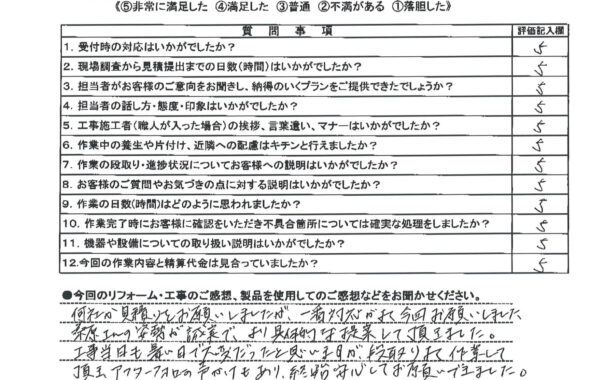 《⑤非常に満足した ④満足した ③普通 ②不満がある ①落胆した》
質問事項 評価記入欄
1. 受付時の対応はいかがでしたか？ 5
2. 現場調査から見積提出までの日数(時間)はいかがでしたか？ 5
3. 担当者がお客様のご意向をお聞きし、納得のいくプランをご提供できたでしょうか？ 5
4. 担当者の話し方・態度・印象はいかがでしたか？ 5
5. 工事施工者(職人が入った場合)の挨拶、言葉遣い、マナーはいかがでしたか？ 5
6. 作業中の養生や片付け、近隣への配慮はキチンと行えましたか？ 5
7. 作業の段取り・進捗状況についてお客様への説明はいかがでしたか？ 5
8. お客様のご質問やお気づきの点に対する説明はいかがでしたか？ 5
9. 作業の日数(時間)はどのように思われましたか？ 5
10. 作業完了時にお客様に確認をいただき不具合箇所については確実な処理をしましたか？ 5
11. 機器や設備についての取り扱い説明はいかがでしたか？ 5
12.今回の作業内容と精算代金は見合っていましたか？ 5
●今回のリフォーム・工事のご感想、製品を使用してのご感想などをお聞かせください。
何社か見積りをお願いしましたが、一番対応がよく今回お願いしました
桑原さんの姿勢が誠実で、より具体的な提案して頂きました。
工事当日も暑い日で大変だったと思いますが、段取りよく作業して
頂き アフターフォロの声かけもあり、終始安心してお願いできました。